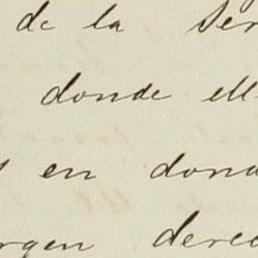 de la Ser
donde ell
en dona
rgen derec